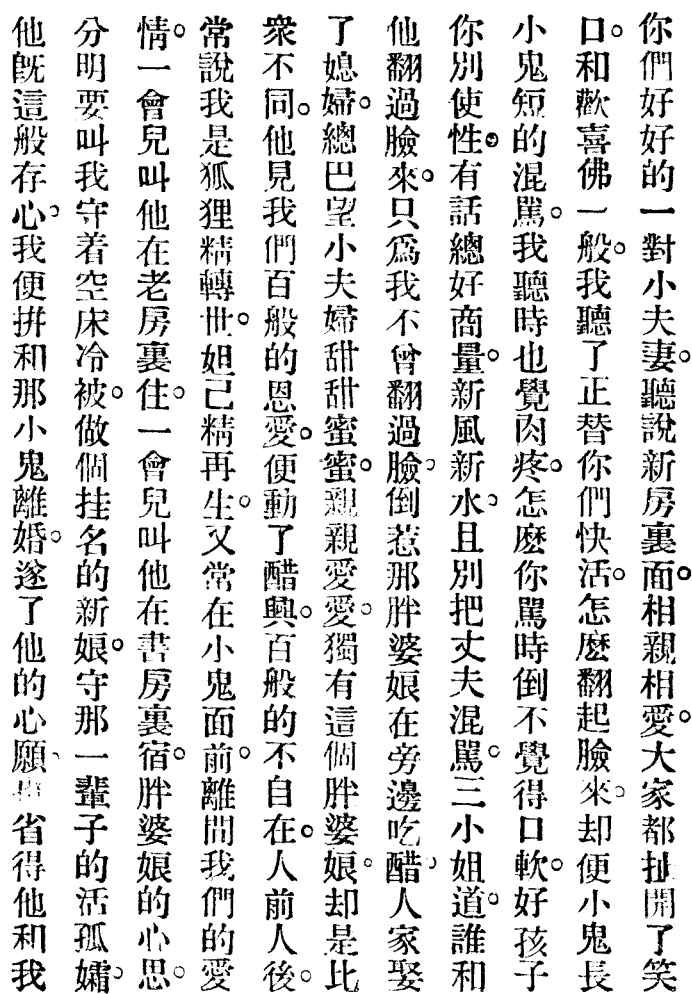 你們好好的一對小夫妻。聽說新房裏面。相親相愛。大家都扯開了笑
口。和歡喜佛一般。我聽了正替你們快活。怎麽翻起臉來。却便小鬼長
小鬼短的混罵。我聽時也覺肉疼。怎麽你罵時倒不覺得口軟。好孩子
你別使性。有話總好商量。新風新水。且別把丈夫混罵。三小姐道。誰和
他翻過臉來。只爲我不曾翻過臉。倒惹那胖婆娘在旁邊吃醋。人家娶
了媳婦。總巴望小夫婦甜甜蜜蜜。親親愛愛。獨有這個胖婆娘。却是比
衆不同。他見我們百般的恩愛。便動了醋興。百般的不自在。人前人後。
常說我是狐狸精轉世。妲己精再生。又常在小鬼面前。離間我們的愛
情。一會兒叫他在老房裏住。一會兒叫他在書房裏宿。胖婆娘的心思。
分明要叫我守着空床冷被。做個挂名的新娘。守那一輩子的活孤孀。
他旣這般存心。我便拚和那小鬼離婚。遂了他的心願、省得他和我